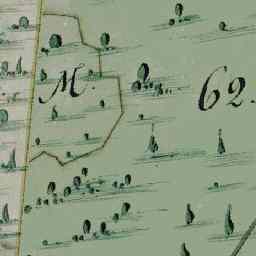 M. 62.